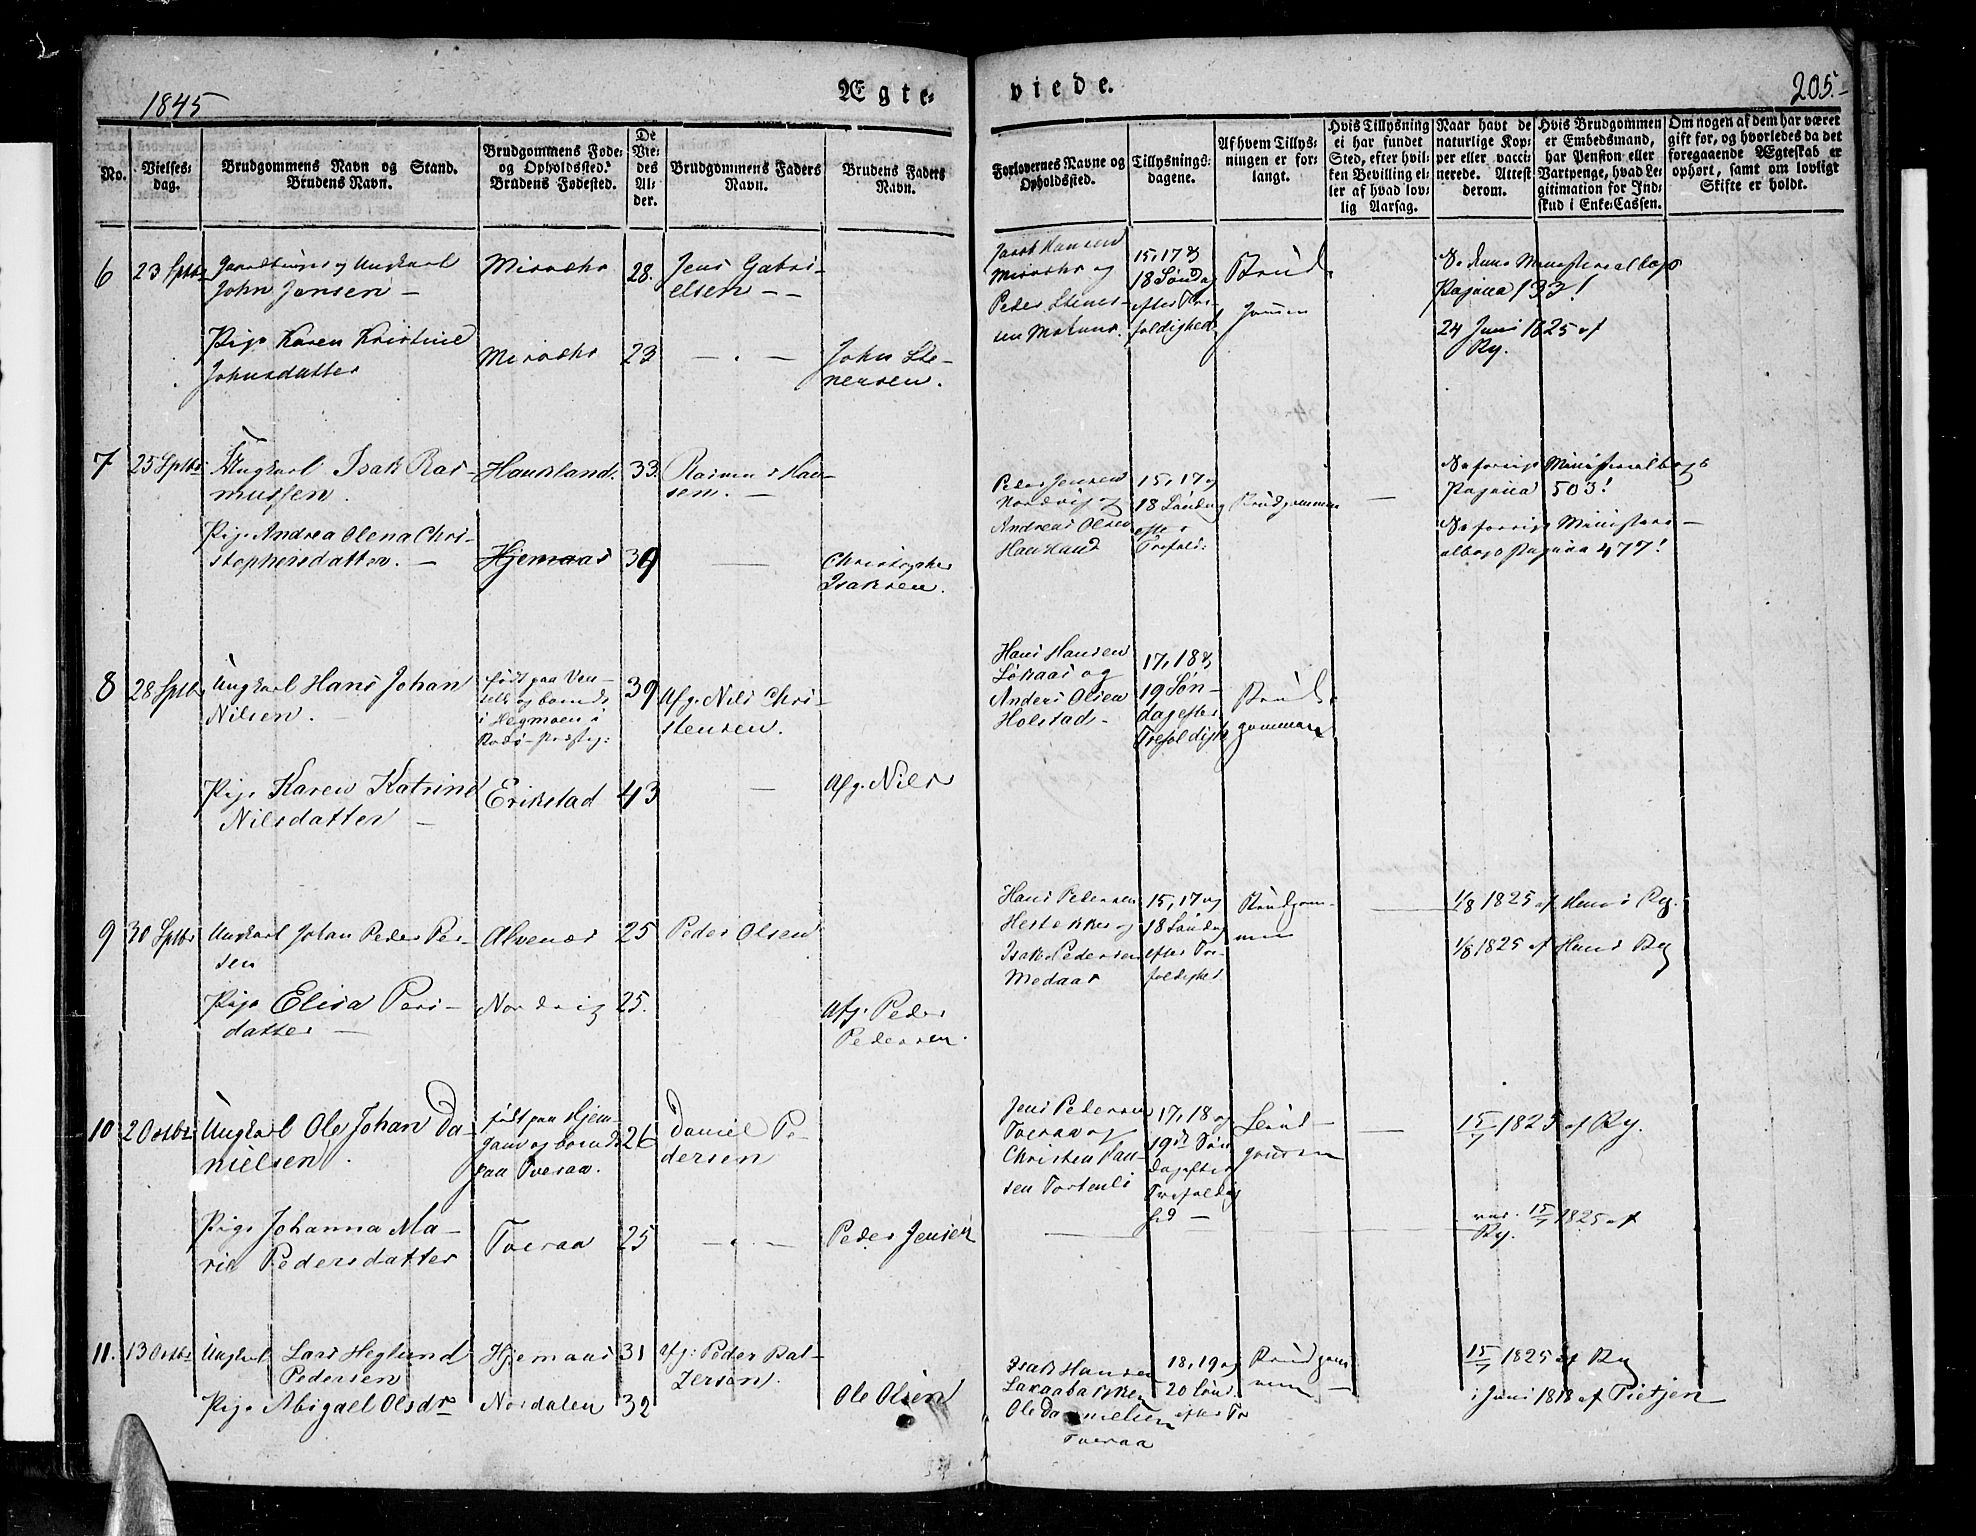 1845
Ægte-
viede.
205.
No.
Vielses-
dag.
Brudgommens Navn og Stand.
Brudens Navn.
Brudgommens Føde-
og Opholdssted.
Brudens Fødested.
De
Vie-
des
Al-
der.
Brudgommens Faders
Navn.
Brudens Faders
Navn.
Forlovernes Navne og
Opholdssted.
Tillysnings-
dagene.
Af hvem Tillys-
ningen er for-
langt.
Hvis Tillysning
ei har fundet
Sted, efter hvil-
ken Bevilling el-
ler af hvad lov-
lig Aarsag.
Naar havt de
naturlige Kop-
per eller vacci-
nerede. Attest
derom.
Hvis Brudgommen
er Embedsmand,
har Pension eller
Vartpenge, hvad Le-
gitimation for Ind-
skud i Enke-Cassen.
Om nogen af dem har været
gift før, og hvorledes da det
foregaaende Ægteskab er
ophørt, samt om lovligt
Skifte er holdt.
6
23 Sptbr
og Ungkarl
John Jensen
28.
Jens Gabri-
elsen
Hansen
og
Peder Stenes-
sen
15, 17 &
18 Sønd
efter Tre-
foldighed
Brud-
Pagina 133!
24 Juni 1825 af
Ry.
Pige Karen Kristine
Johnsdatter
23
John Ste-
nersen.
7
25 Sptbr
Ungkarl Isak Ras-
mussen.
Haukland.
33.
Rasmus Han-
sen.
Peder Jensen
Nordvig og
Andreas Olsen
Haukland
15, 17 og
18 Søndag
efter
Trefold:
Brudgommen
No forrige Ministerialbogs
Pagina 503!
No forrige Ministeri-
albogs Pagina 477!
Pige Andrea Olena Chri-
stophersdatter.
Hjemaas
39
Christopher
Isaksen.
8
28 Sptbr
Ungkarl Hans Johan
Nilsen.
født paa
og boende
i Hegmoen i
39
Afg. Nils Chri-
stensen.
Hans Hansen
og
Anders Olsen
Holstad
17, 18 &
19 Søn-
dag efter
Trefoldigh
Brud-
gommen
Pige Karen Katrine
Nilsdatter
Erikstad
43
Afg. Nils
9
30 Sptbr
Ungkarl Johan Peder Per-
sen
Alvenes
25
Peder Olsen
Hans Pedersen
og
Isak Pedersen
15, 17 og
18 Søndag
efter Tre-
foldighed
Brudgom-
men
1/8 1825 af Ry.
1/8 1825 af Ry
Pige Elisa Pers-
datter
Nordvig
25.
Afg: Peder
Pedersen.
10
2 Octbr
Ungkarl Ole Johan Da-
nielsen
født paa Hjem-
og boende
paa Tveraa.
26
Daniel Pe-
dersen
Jens Pedersen
Tveraa og
Christen Han-
sen
17, 18 og
19de Søn
dag efter
Trefoldig
hed
15/7 1825 af Ry.
Pige Johanna Ma-
rie Pedersdatter
Tveraa
25
Peder Jensen
15/7 1825 af
Ry.
11.
13 Octbr
Ungkarl Lars Heglund
Pedersen
Hjemaas
31
Afg: Peder Bal-
zersen.
Isak Hansen
Ole Danielsen
Tveraa
18, 19 og
20 Sønd.
efter Tr
Brudgom
men
15/7 1825 af Ry
i Juni 1818 af Tietjen
Pige Abigael Olsdr
Nordalen
32
Ole Olsen